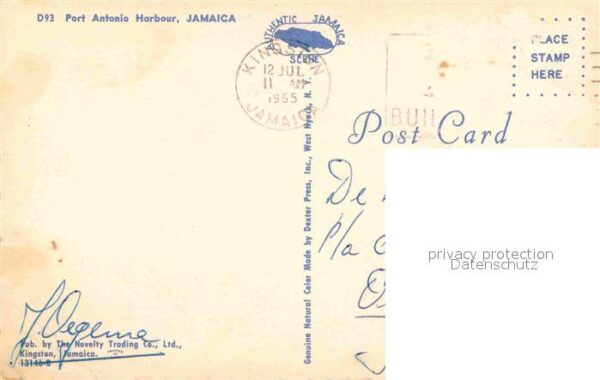 D93 Port Antonio Harbour, JAMAICA
AUTHENTIC JAMAICA
SCENE
KINGSTON
12 JUL
11 AM
1965
JAMAICA
PLACE
STAMP
HERE
Post Card
De
P/a
privacy protection
Datenschutz
Genuine Natural Color Made by Dexter Press, Inc., West Nyack, N. Y.
Pub. by The Novelty Trading Co., Ltd.,
Kingston, Jamaica.
13146-B